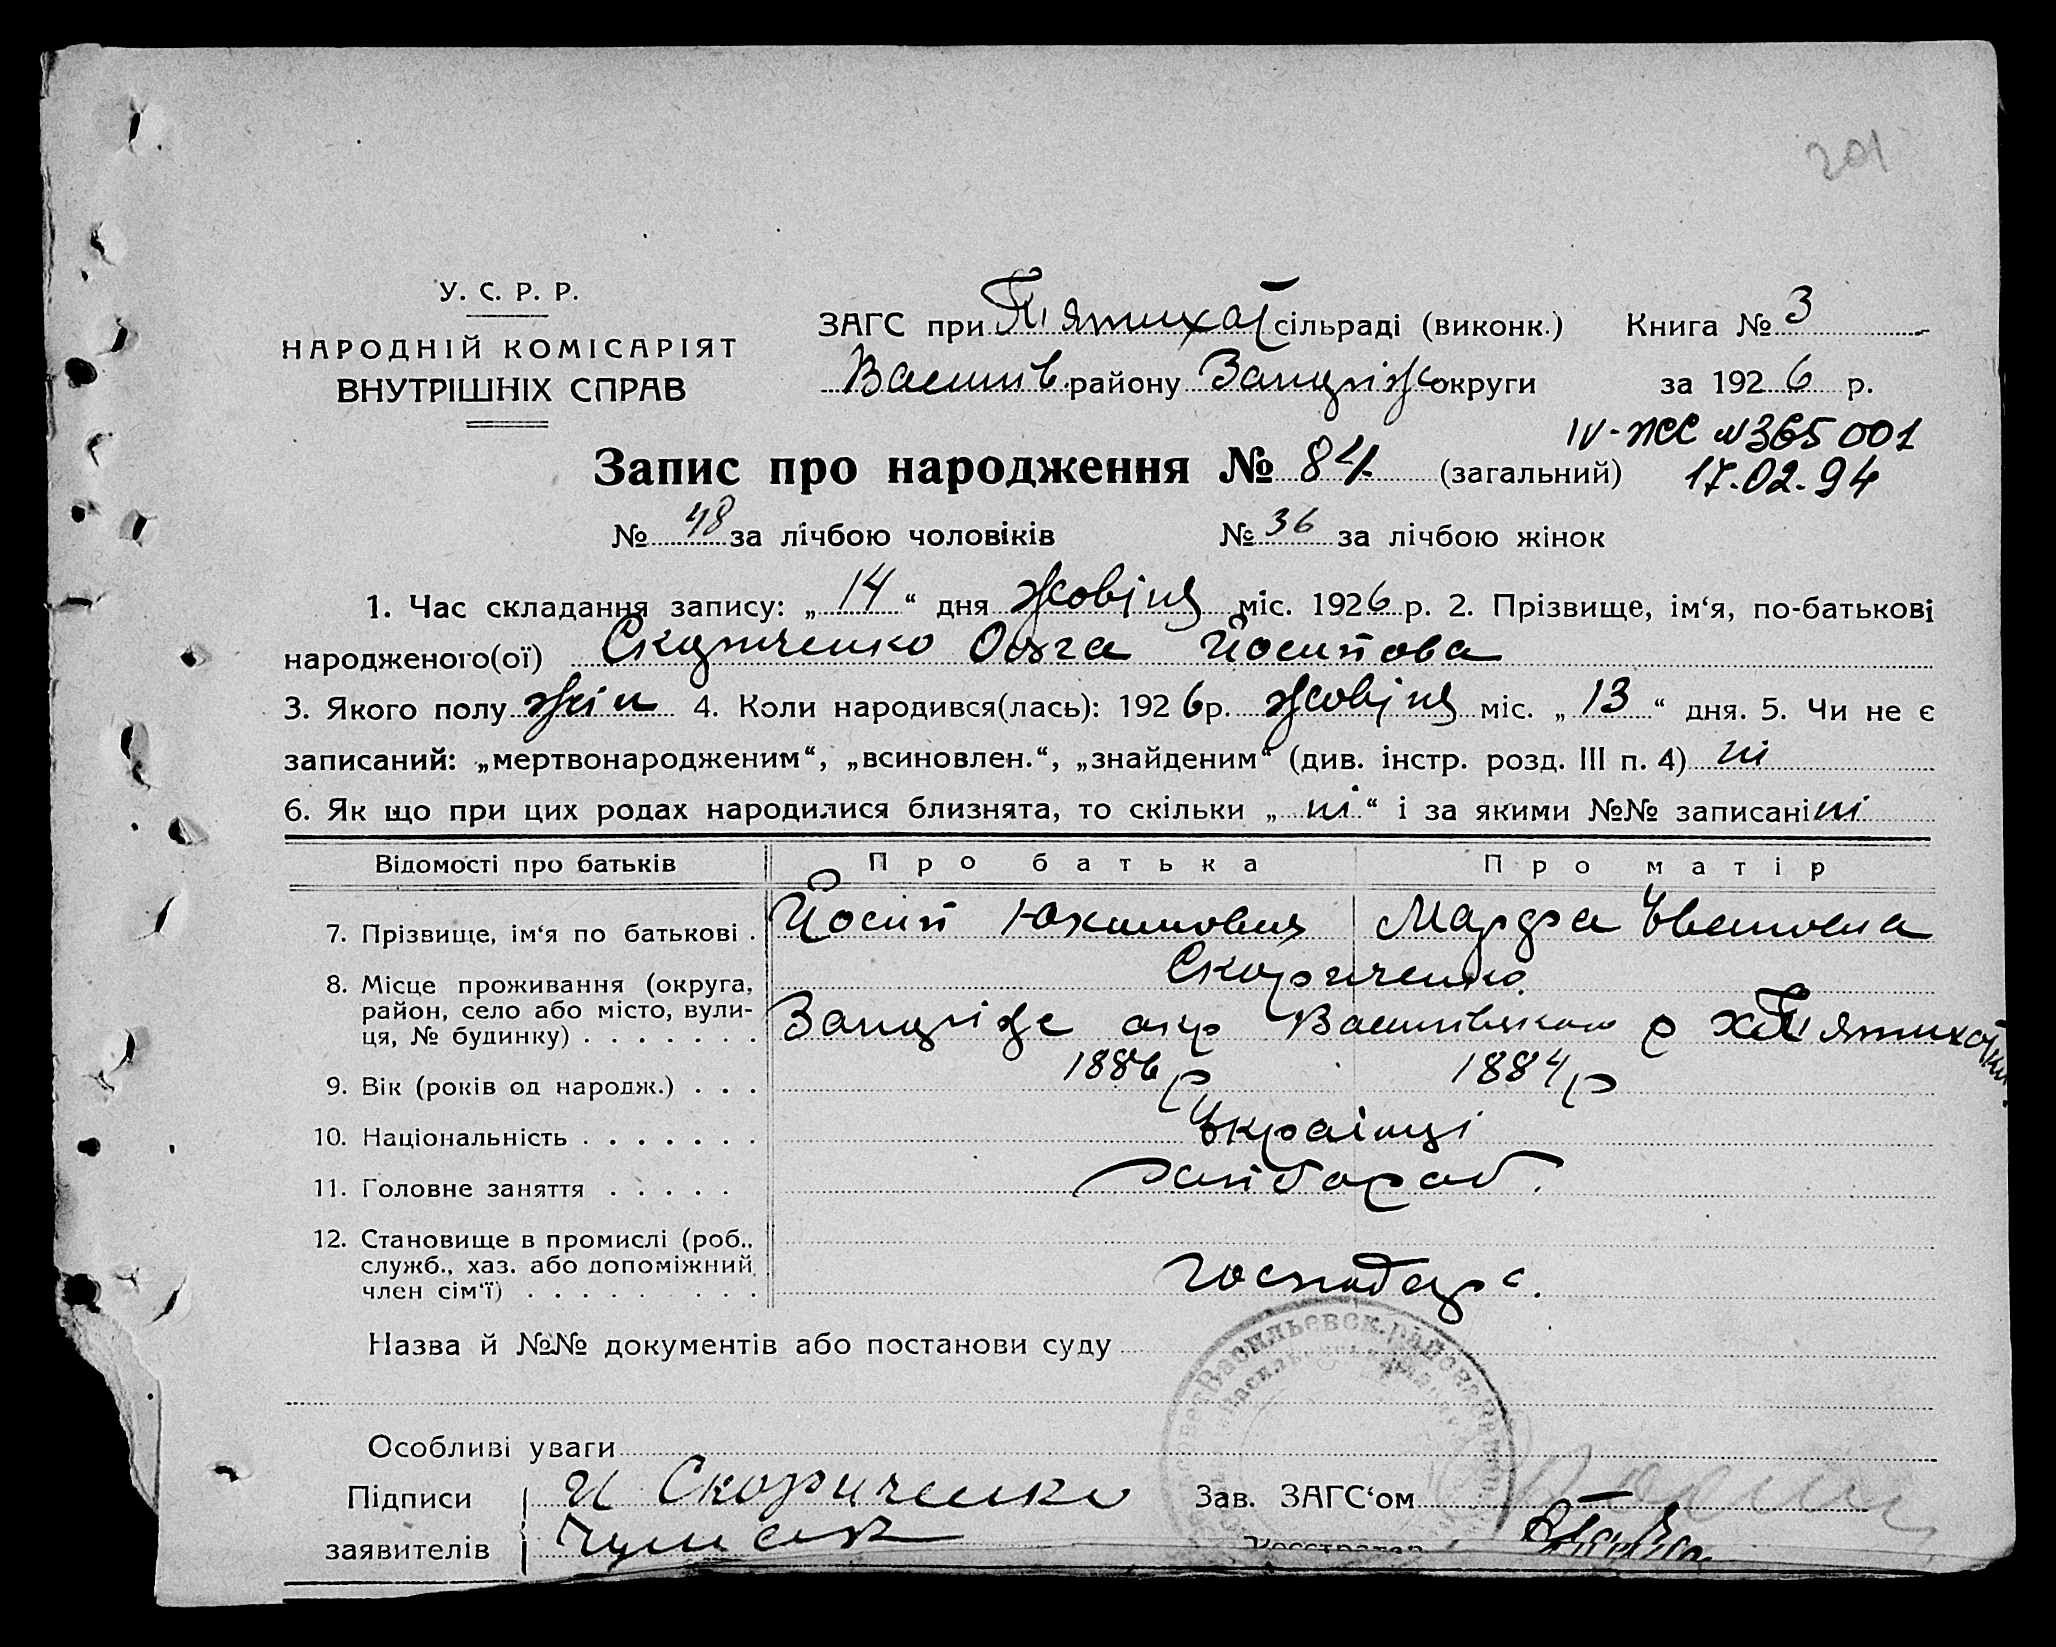 201
У. С. Р. Р.
НАРОДНІЙ КОМІСАРІЯТ
ВНУТРІШНІХ СПРАВ
ЗАГС при П'ятихат сільраді (виконк.) Книга № 3
Василів району Запоріж округи за 1926 р.
IV-ЖС №365001
17.02.94
Запис про народження № 84 (загальний)
№ 48 за лічбою чоловіків № 36 за лічбою жінок
1. Час складання запису: „14“ дня жовтня міс. 1926 р. 2. Прізвище, ім'я, по-батькові
народженого(ої) Скориченко Ольга Йосипова
3. Якого полу жін 4. Коли народився(лась): 1926 р. жовтня міс. „13“ дня. 5. Чи не є
записаний: „мертвонародженим“, „всиновлен.“, „знайденим“ (див. інстр. розд. III п. 4) ні
6. Як що при цих родах народилися близнята, то скільки „ні“ і за якими №№ записані ні
Відомості про батьків Про батька Про матір
7. Прізвище, ім'я по батькові . Йосип Юхимович Марфа
Скориченко
8. Місце проживання (округа,
район, село або місто, вули-
ця, № будинку) . . . . . . . Запоріж окр Василівського р х П'ятихатки
9. Вік (років од народж.) . . . 1886 р 1884 р
10. Національність . . . . . . . Українці
11. Головне заняття . . . . .
12. Становище в промислі (роб.,
служб., хаз. або допоміжний
член сім'ї) . . . . . . . . . господар
Назва й №№ документів або постанови суду
Особливі уваги
Підписи И Скориченко Зав. ЗАГС'ом
заявителів